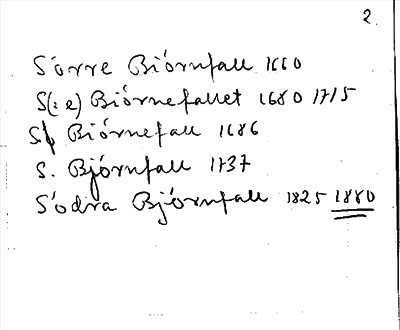 2.
Sörre Biórnfall 1660
S(: e) Biórnefallet 1680 1715
S. Biórnefall 1686
S. Bjórnfall 1737
Södra Bjórnfall 1825 1880